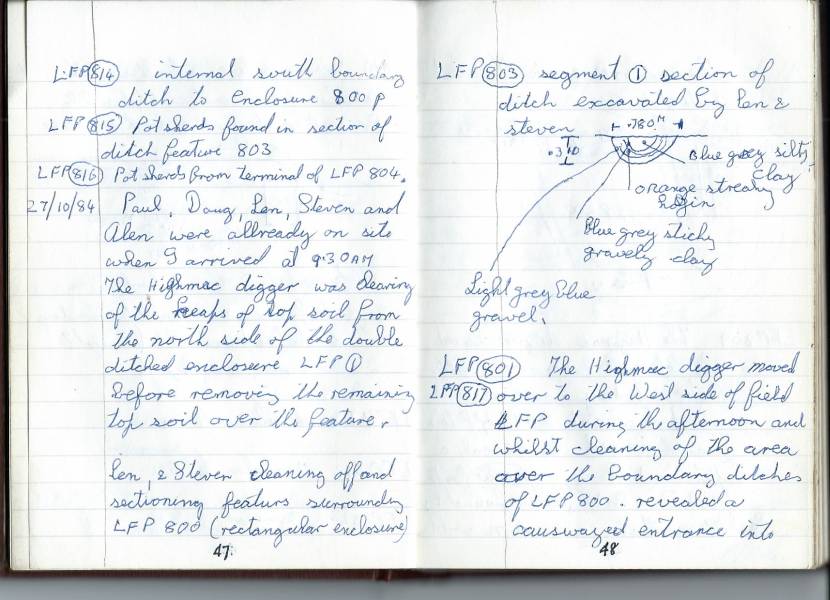 LFP 814 internal south boundary
ditch to enclosure 800 p
LFP 815 Pot sherds found in section of
ditch feature 803
LFP 816 Pot sherds from terminal of LFP 804.
27/10/84 Paul, Doug, Len, Steven and
Alen were allready on site
when I arrived at 9.30AM
The Highmac digger was clearing
of the heaps of top soil from
the north side of the double
ditched enclosure LFP 1
before removing the remaining
top soil over the feature.
Len, & Steven cleaning off and
sectioning featurs surrounding
LFP 800 (rectangular enclosure)
47.
LFP 803 segment 1 section of
ditch excavated by Len &
steven
.780M
.310
Blue grey silty
clay
orange streaky
Blue grey sticky
gravely clay
Light grey blue
gravel.
LFP 801 The Highmac digger moved
LFP 817 over to the West side of field
LFP during the afternoon and
whilst cleaning of the area
over the boundary ditches
of LFP 800. revealed a
causwayed entrance into
48